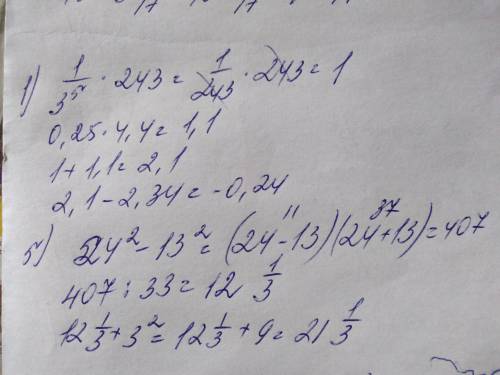 1) 1/3⁵ · 243 = 1/243 · 243 = 1
0,25 · 4,4 = 1,1
1 + 1,1 = 2,1
2,1 - 2,34 = -0,24
5) 24² - 13² = (24 - 13)¹¹ (24 + 13)³⁷ = 407
407 : 33 = 12 1/3
12 1/3 + 3² = 12 1/3 + 9 = 21 1/3